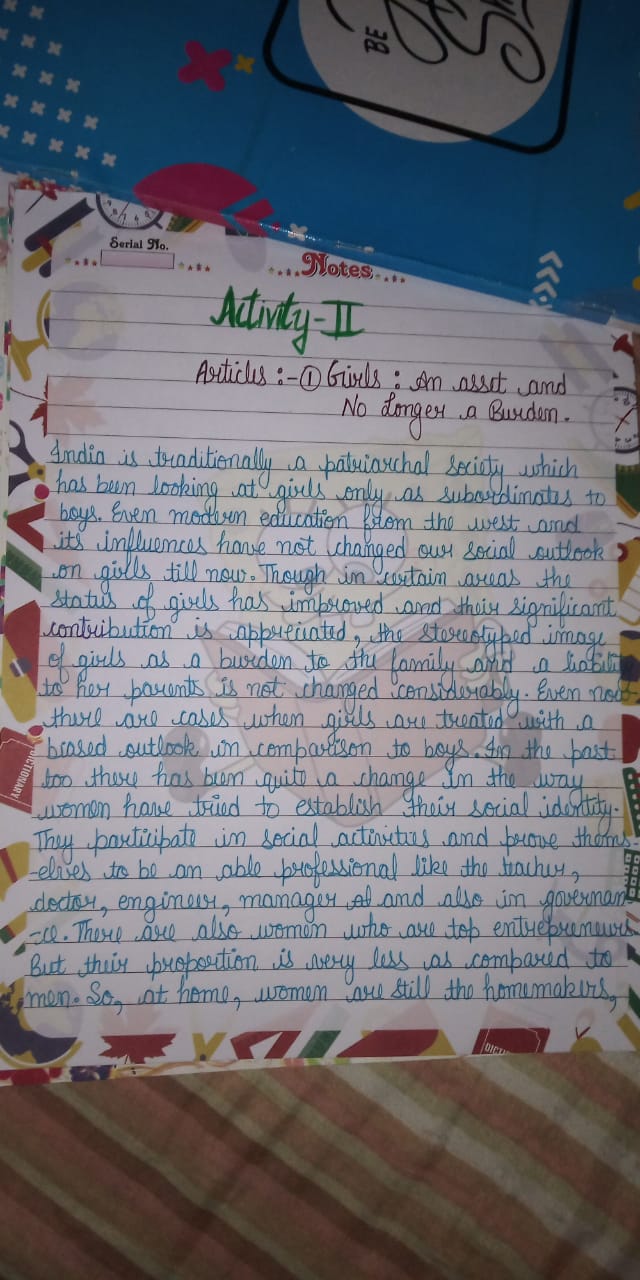 BE
Serial No.
Notes
Activity-II
Articles :- ① Girls : An asset and
No Longer a Burden.
India is traditionally a patriarchal society which
has been looking at girls only as subordinates to
boys. Even modern education from the west and
its influences have not changed our social outlook
on girls till now. Though in certain areas the
status of girls has improved and their significant
contribution is appreciated, the stereotyped image
of girls as a burden to the family and a liability
to her parents is not changed considerably. Even now
there are cases when girls are treated with a
biased outlook in comparison to boys. In the past
too there has been quite a change in the way
women have tried to establish their social identity.
They participate in social activities and prove thems
-elves to be an able professional like the teacher,
doctor, engineer, manager and also in governan
-ce. There are also women who are top entrepreneurs.
But their proportion is very less as compared to
men. So, at home, women are still the homemakers,
DICTIONARY
DICTI